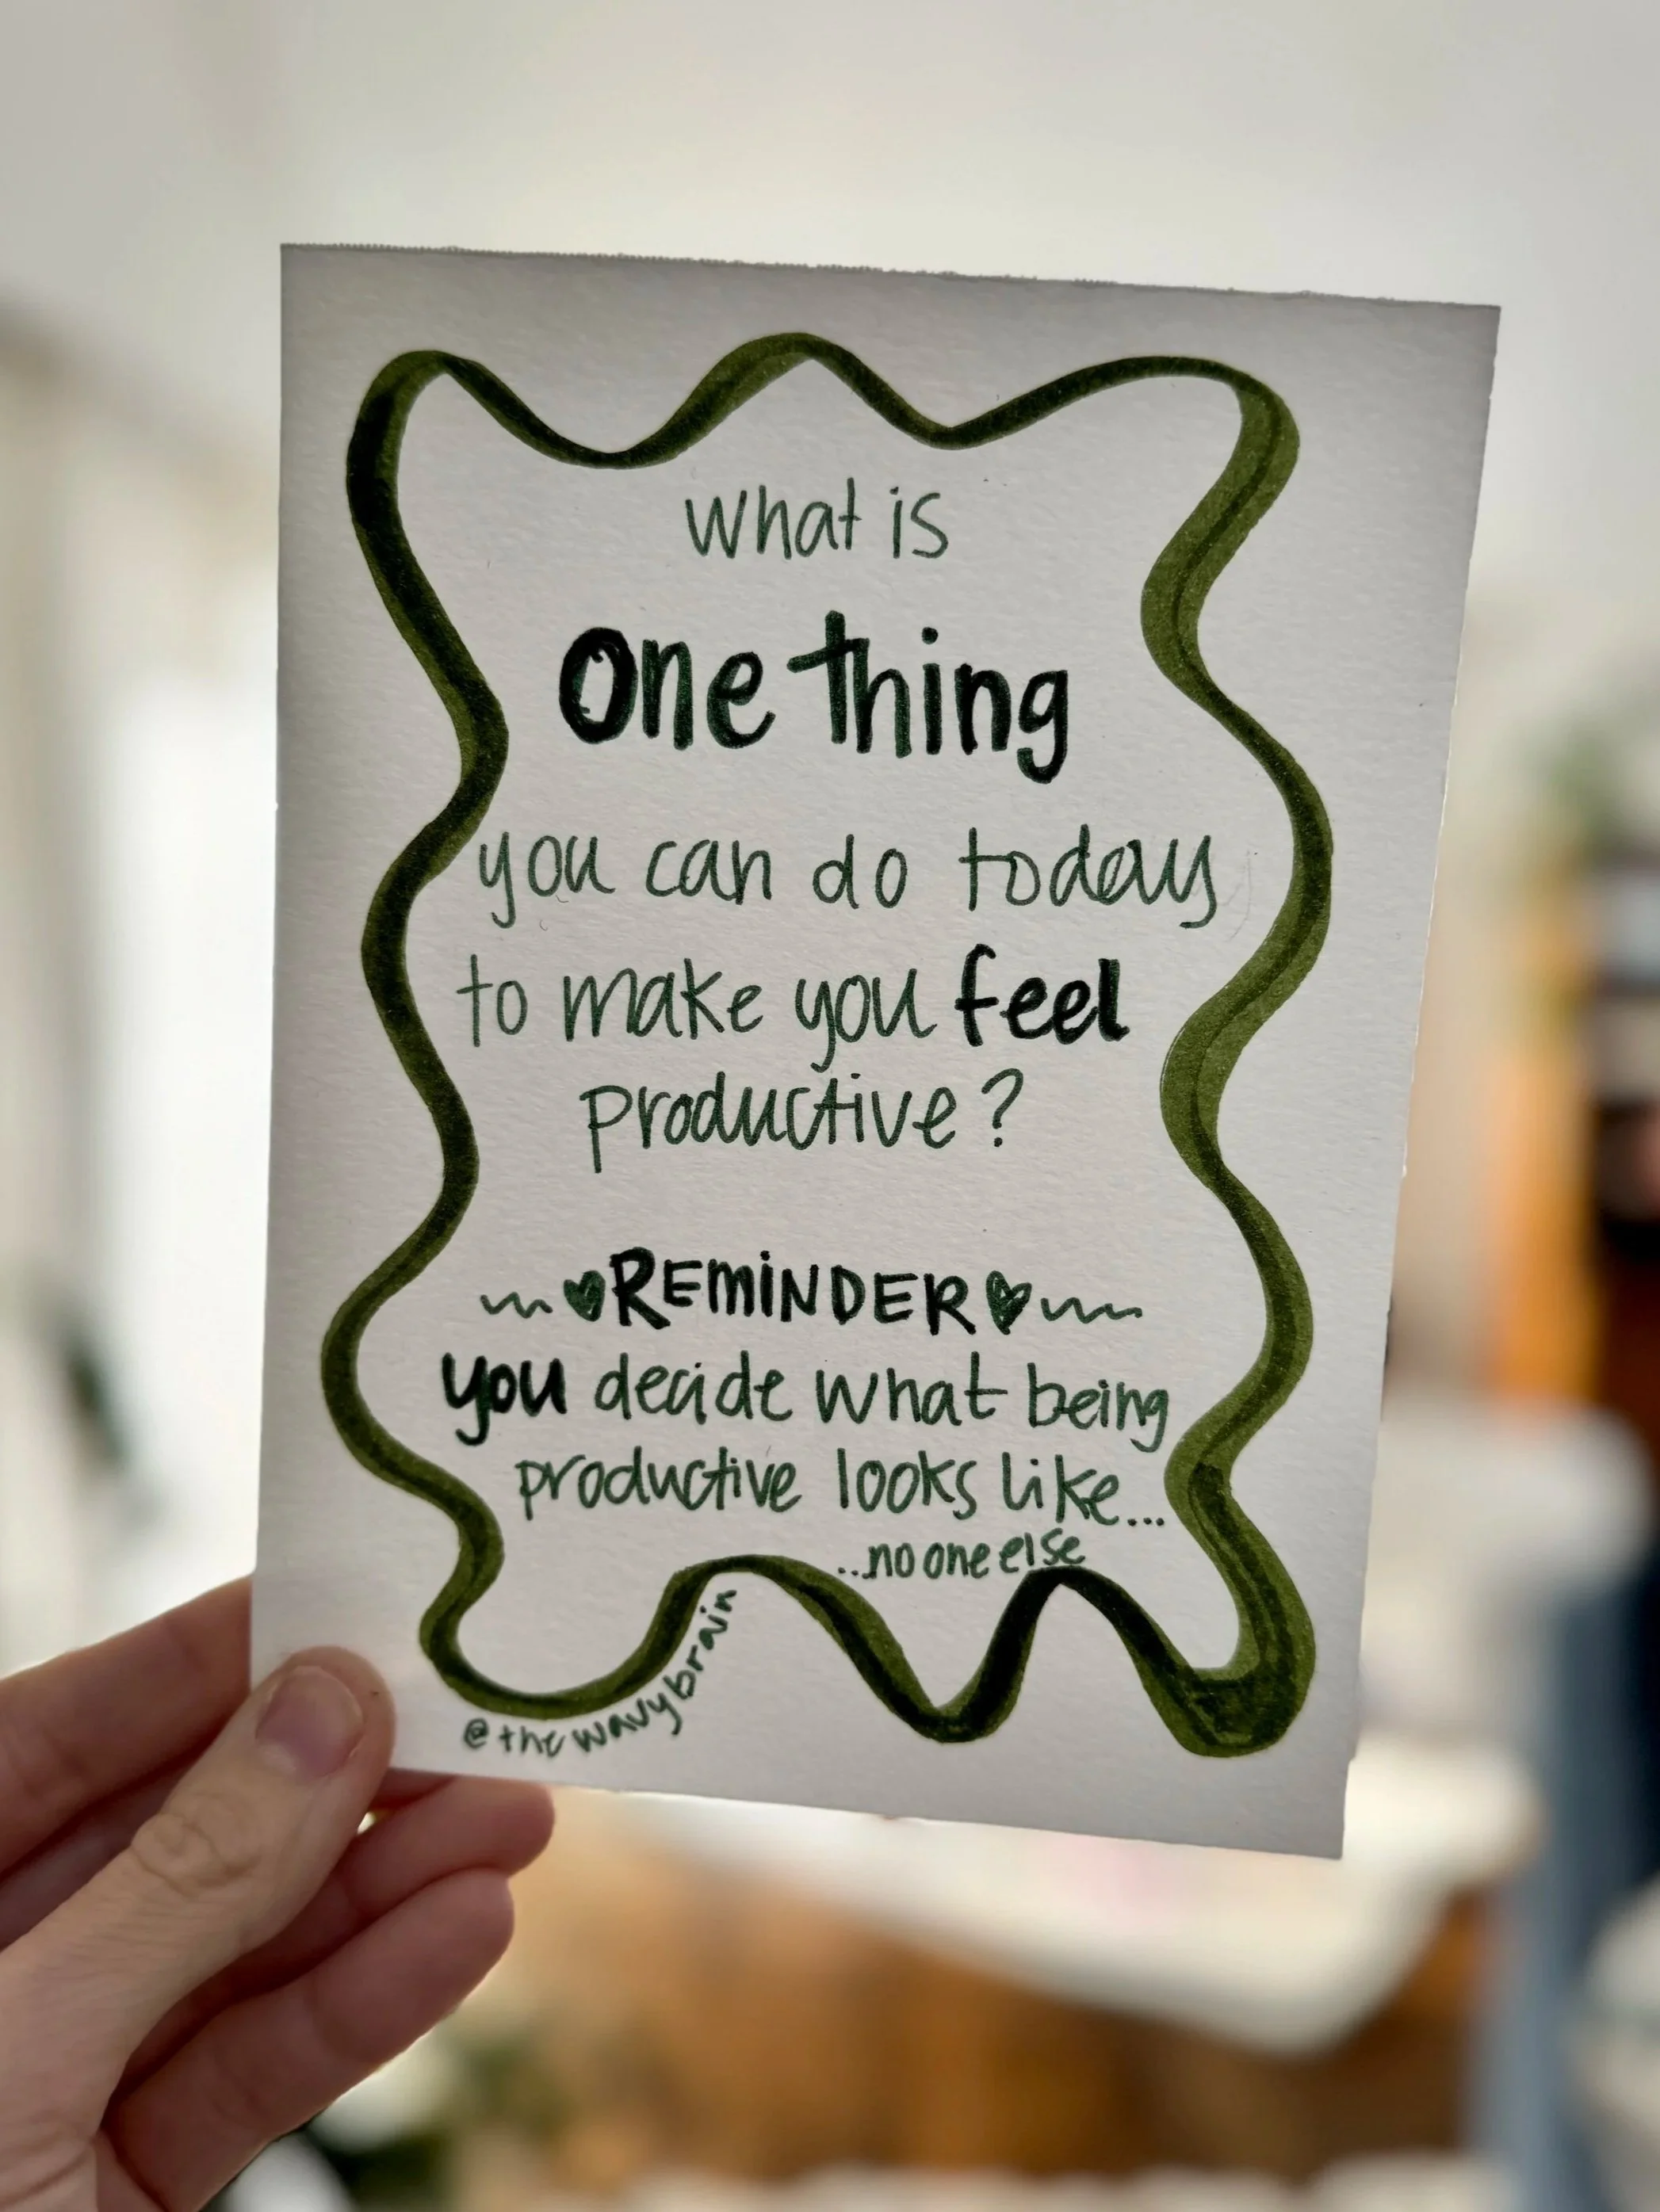 what is
one thing
you can do today
to make you feel
productive?
REMINDER
you decide what being
productive looks like...
...no one else
@thewavybrain